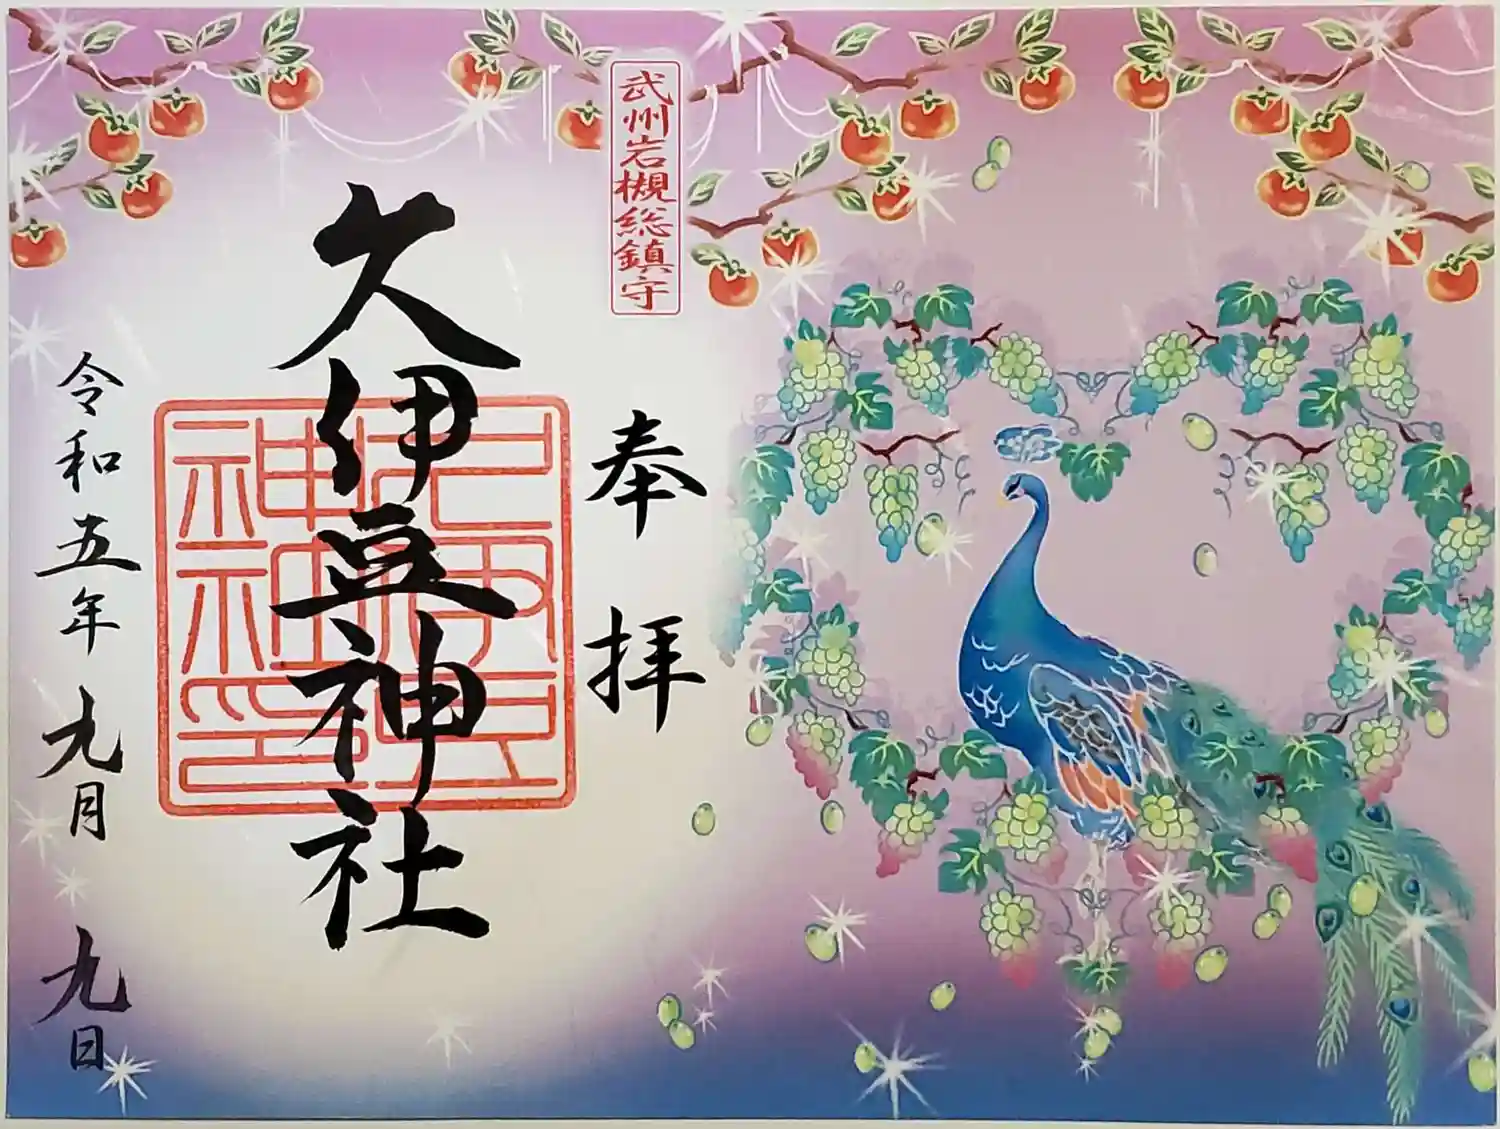 武州岩槻総鎮守
奉拝
久伊豆神社
久伊豆神社神印
令和五年九月九日